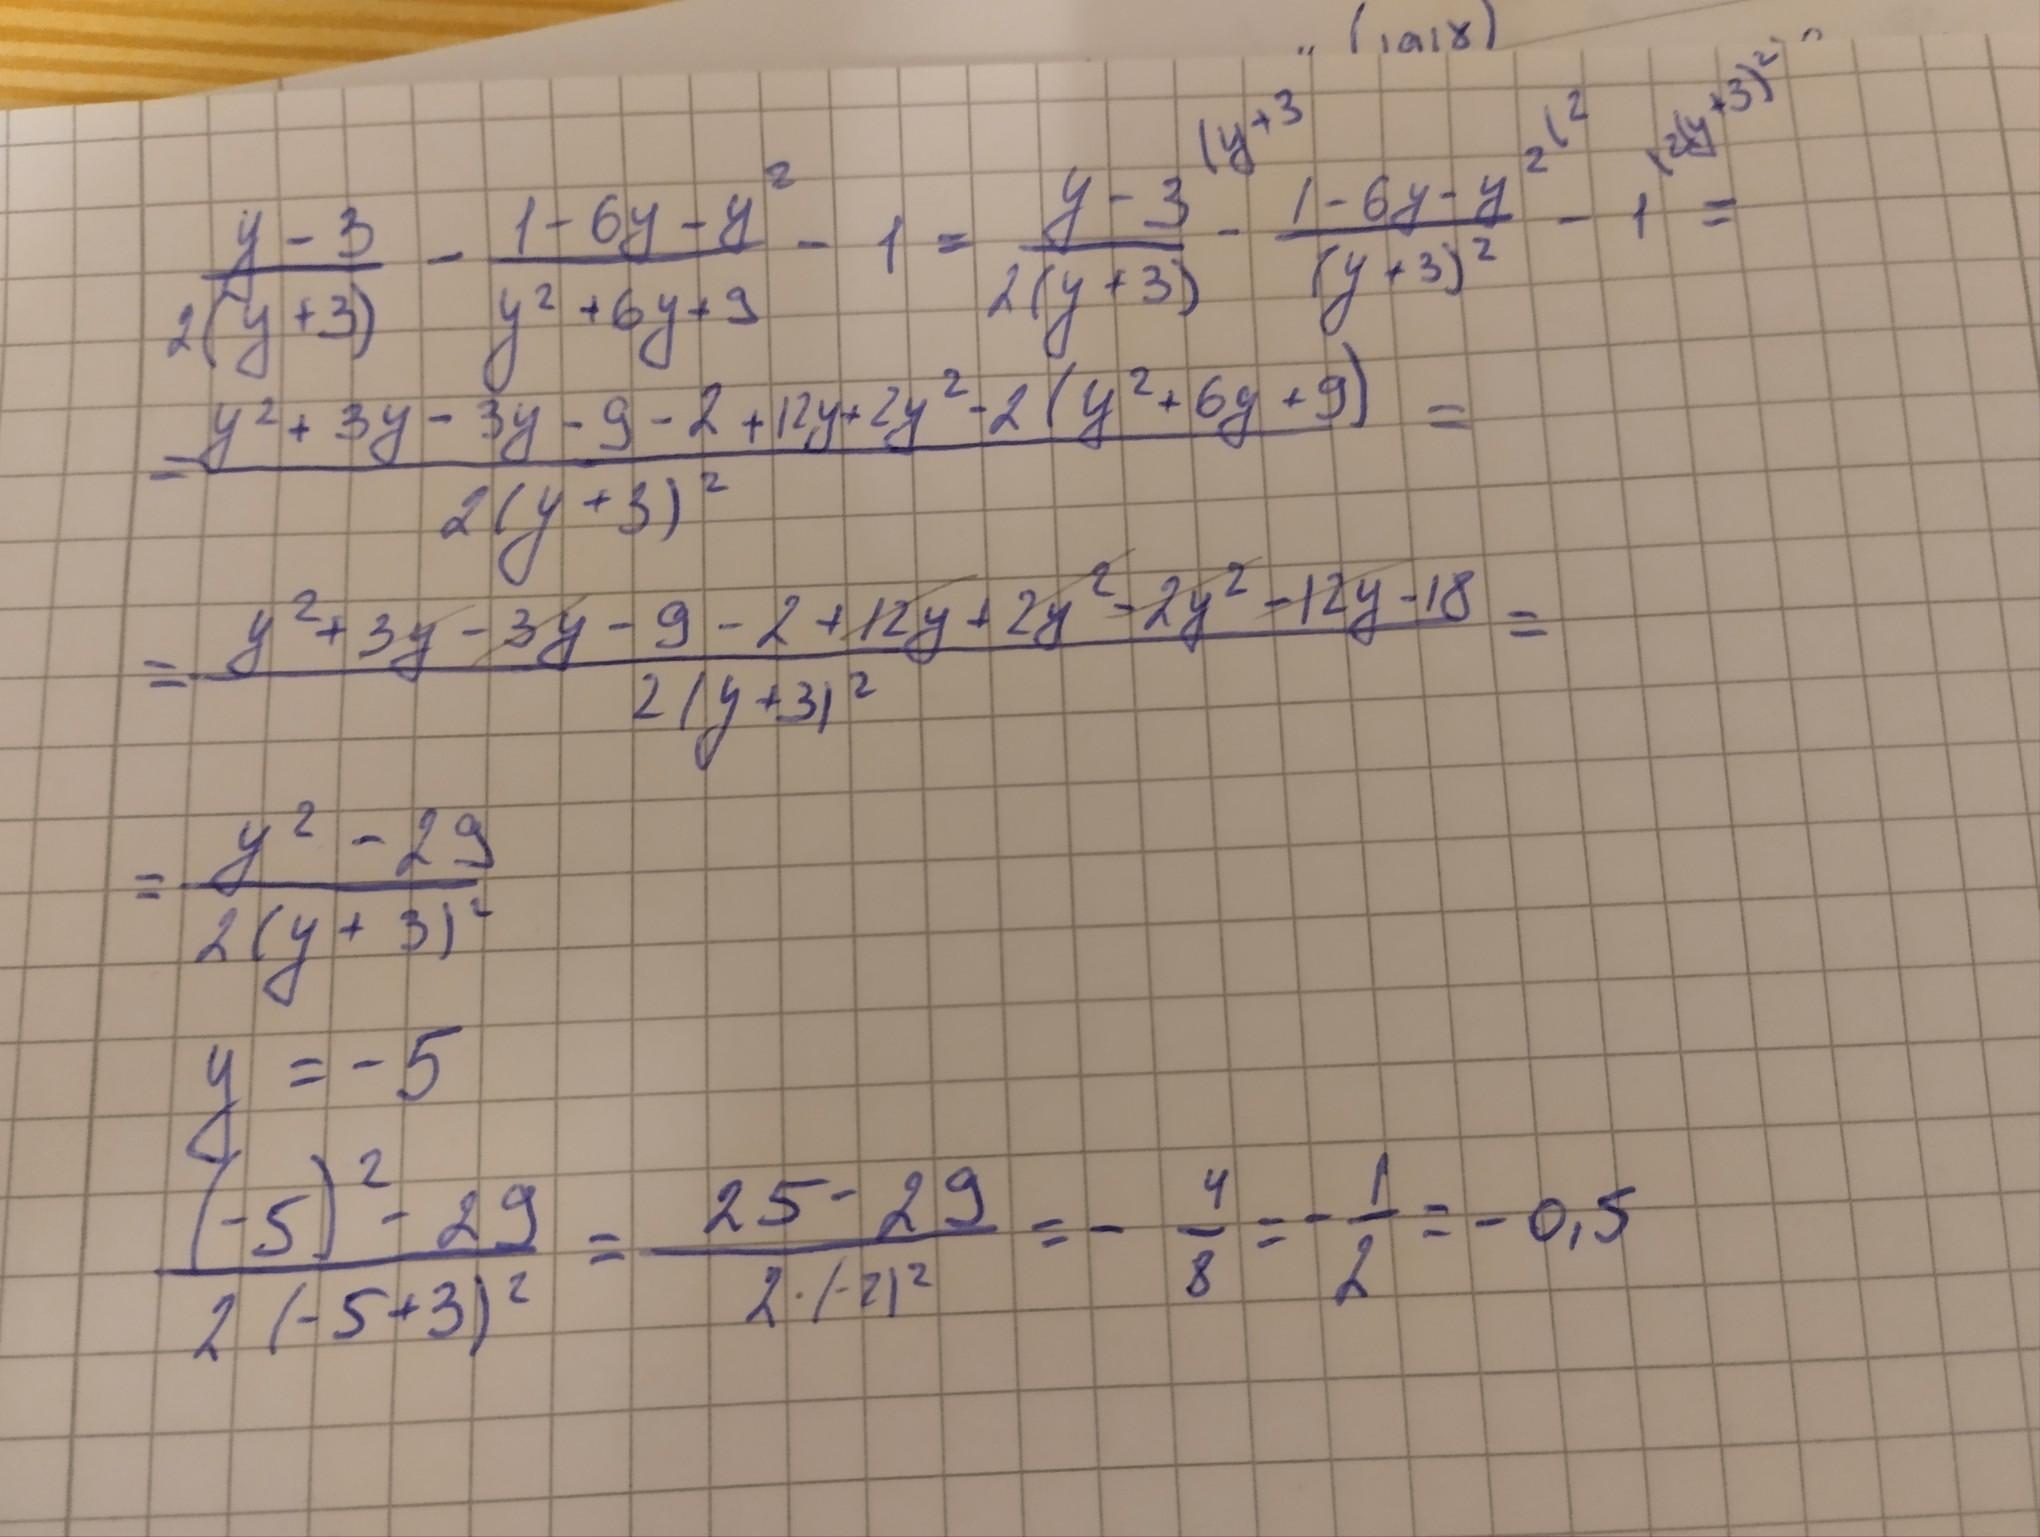 (y-3)/(2(y+3)) - (1-6y-y²)/(y²+6y+9) - 1 = (y-3)/(2(y+3)) ⁽ʸ⁺³ - (1-6y-y²)/((y+3)²) ⁽² - 1 ⁽²⁽ʸ⁺³⁾² =
= (y²+3y-3y-9-2+12y+2y²-2(y²+6y+9))/(2(y+3)²) =
= (y²+3y-3y-9-2+12y+2y²-2y²-12y-18)/(2(y+3)²) =
= (y²-29)/(2(y+3)²)
y = -5
((-5)²-29)/(2(-5+3)²) = (25-29)/(2·(-2)²) = - 4/8 = - 1/2 = - 0,5